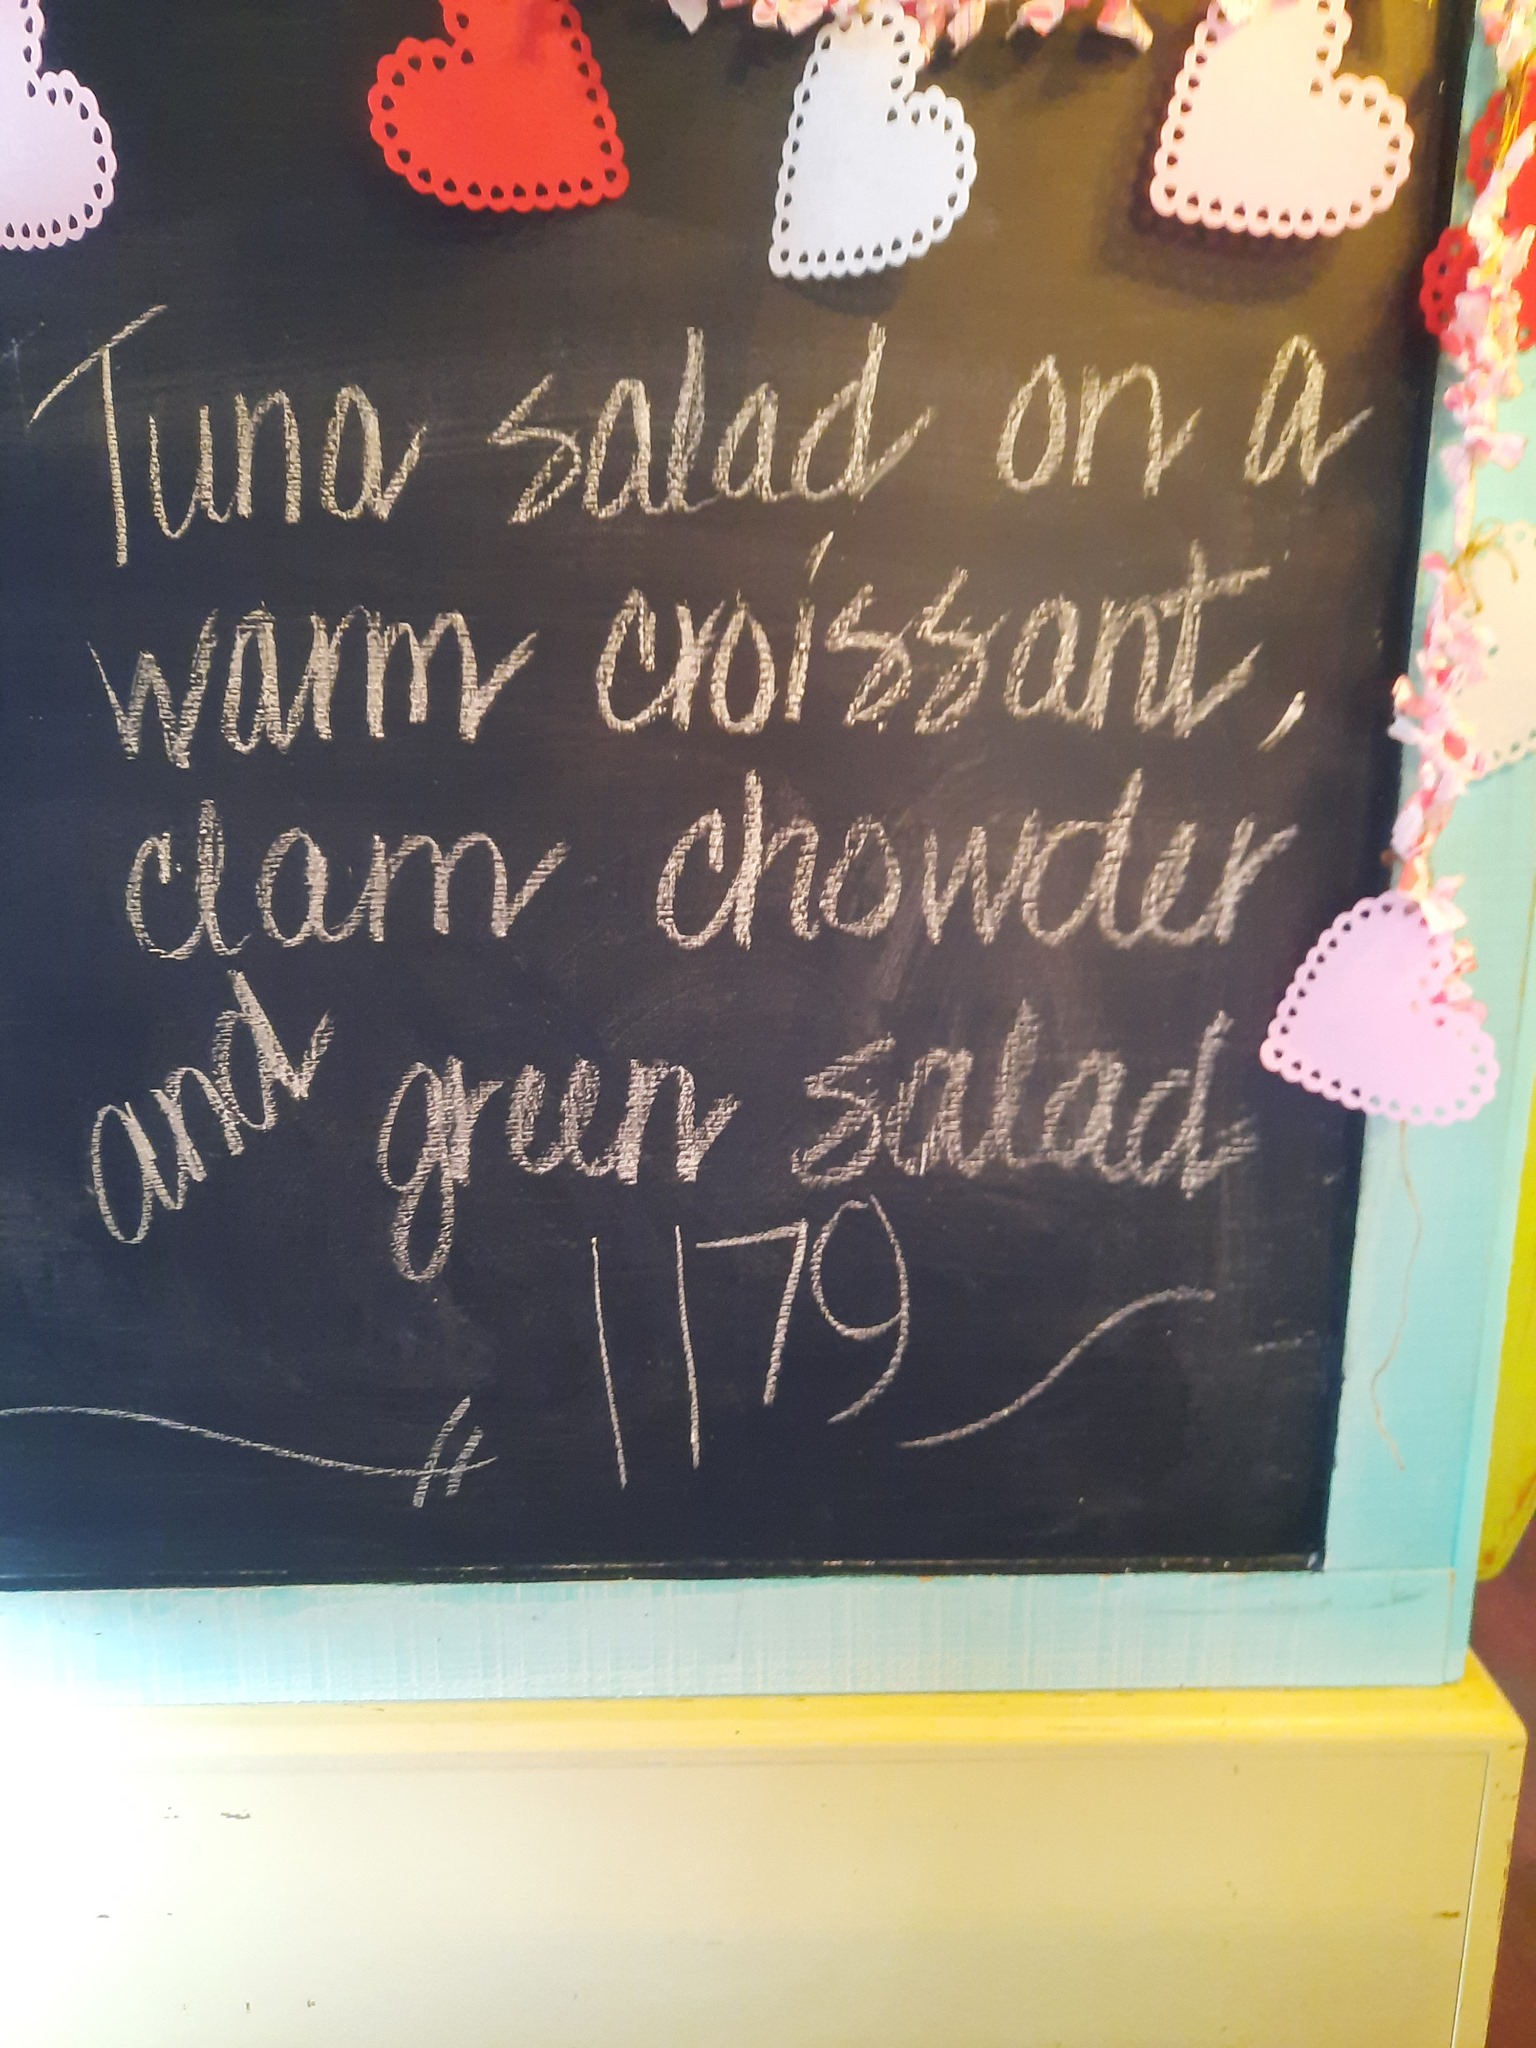 Tuna salad on a
warm croissant,
clam chowder
and green salad
1179